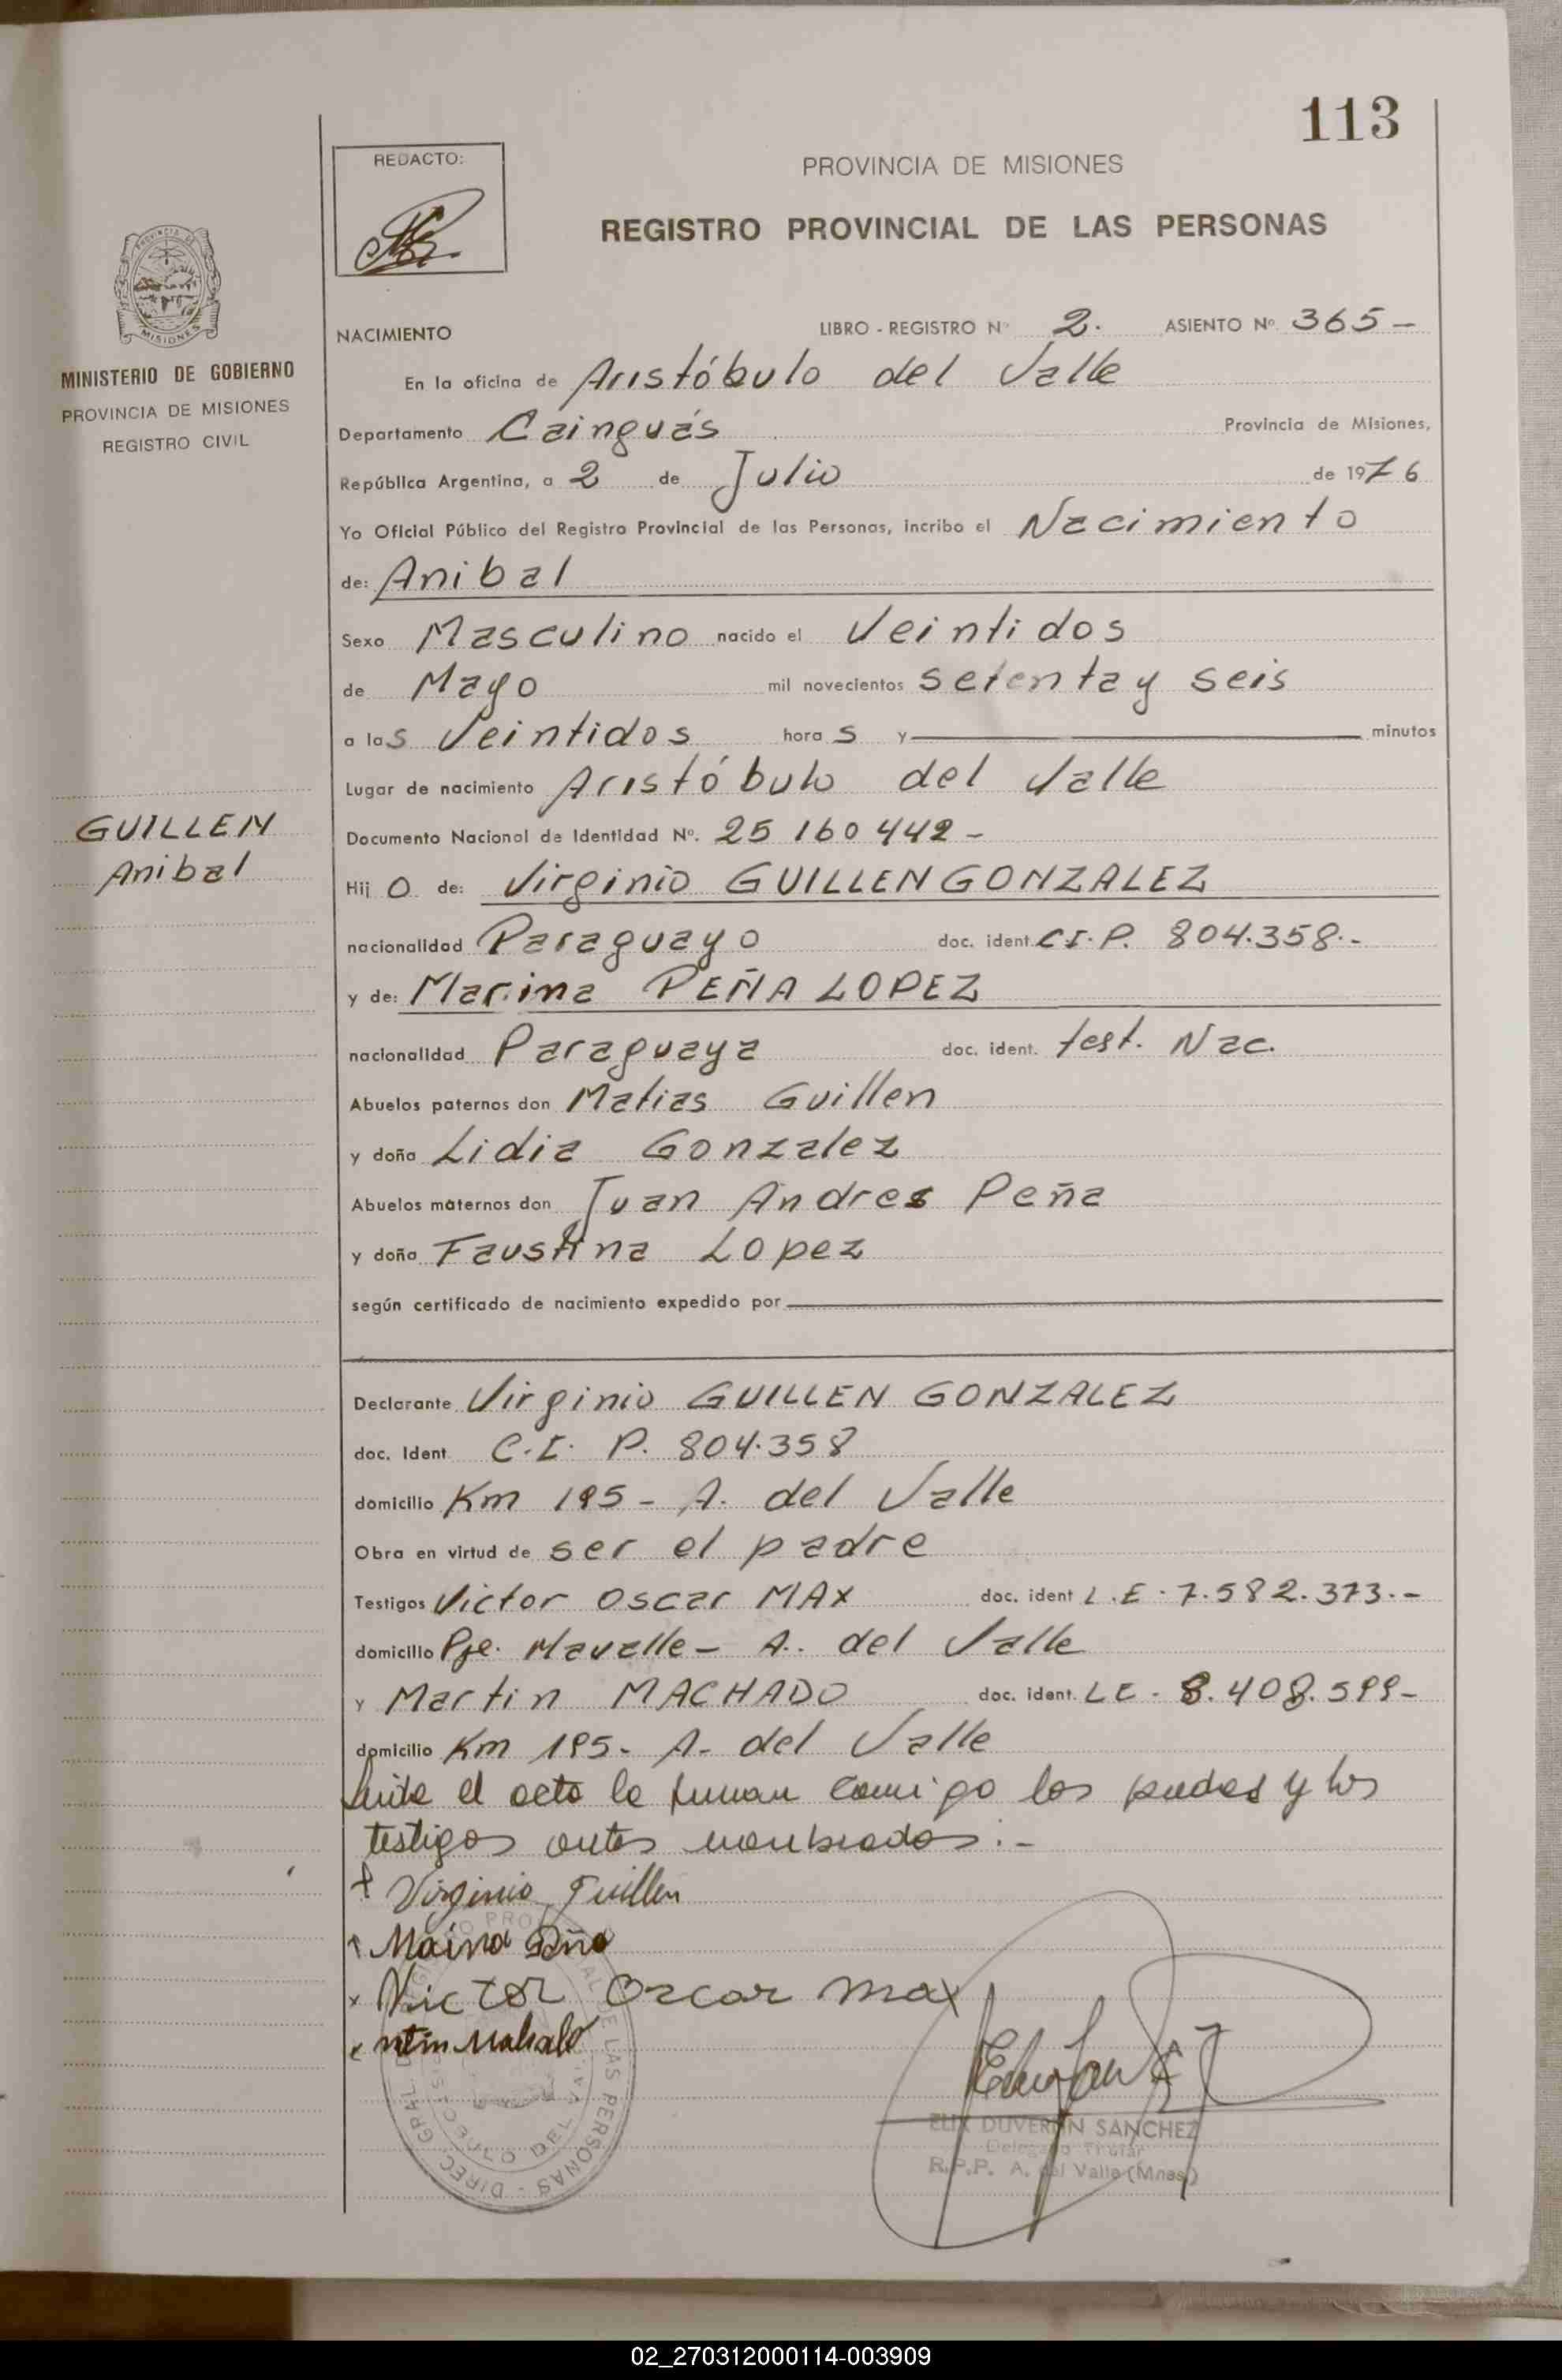 113
REDACTO:
PROVINCIA DE MISIONES
REGISTRO PROVINCIAL DE LAS PERSONAS
PROVINCIA DE
MISIONES
MINISTERIO DE GOBIERNO
PROVINCIA DE MISIONES
REGISTRO CIVIL
NACIMIENTO LIBRO - REGISTRO Nº 2. ASIENTO Nº 365-
En la oficina de Aristóbulo del Valle
Departamento Cainguás Provincia de Misiones,
República Argentina, a 2 de Julio de 1976
Yo Oficial Público del Registro Provincial de las Personas, incribo el Nacimiento
de: Anibal
Sexo Masculino nacido el Veintidos
de Mayo mil novecientos setenta y seis
a las Veintidos horas y minutos
Lugar de nacimiento Aristóbulo del Valle
GUILLEN
Anibal
Documento Nacional de Identidad Nº. 25 160 442-
Hijo de: Virginio GUILLEN GONZALEZ
nacionalidad Paraguayo doc. ident. C.I.P. 804.358.-
y de: Marina PEÑA LOPEZ
nacionalidad Paraguaya doc. ident. test. Nac.
Abuelos paternos don Matias Guillen
y doña Lidia Gonzalez
Abuelos maternos don Juan Andres Peña
y doña Faustina Lopez
según certificado de nacimiento expedido por
Declarante Virginio GUILLEN GONZALEZ
doc. Ident. C.I. P. 804.358
domicilio Km 195- A. del Valle
Obra en virtud de ser el padre
Testigos Victor Oscar MAX doc. ident L.E. 7.582.373.-
domicilio Pje. Mavalle- A. del Valle
y Martin MACHADO doc. ident. LE. 8.408.599-
domicilio Km 195- A. del Valle
el acto lo firman comigo los padres y los
testigos antes nombrados.-
Virginio Guillen
Peña
x Victor Oscar max
DIREC. GRAL. DE LAS PERSONAS
ELIX DUVERAN SANCHEZ
Delegado Titular
R.P.P. A. del Valle (Mnes)
02_270312000114-003909